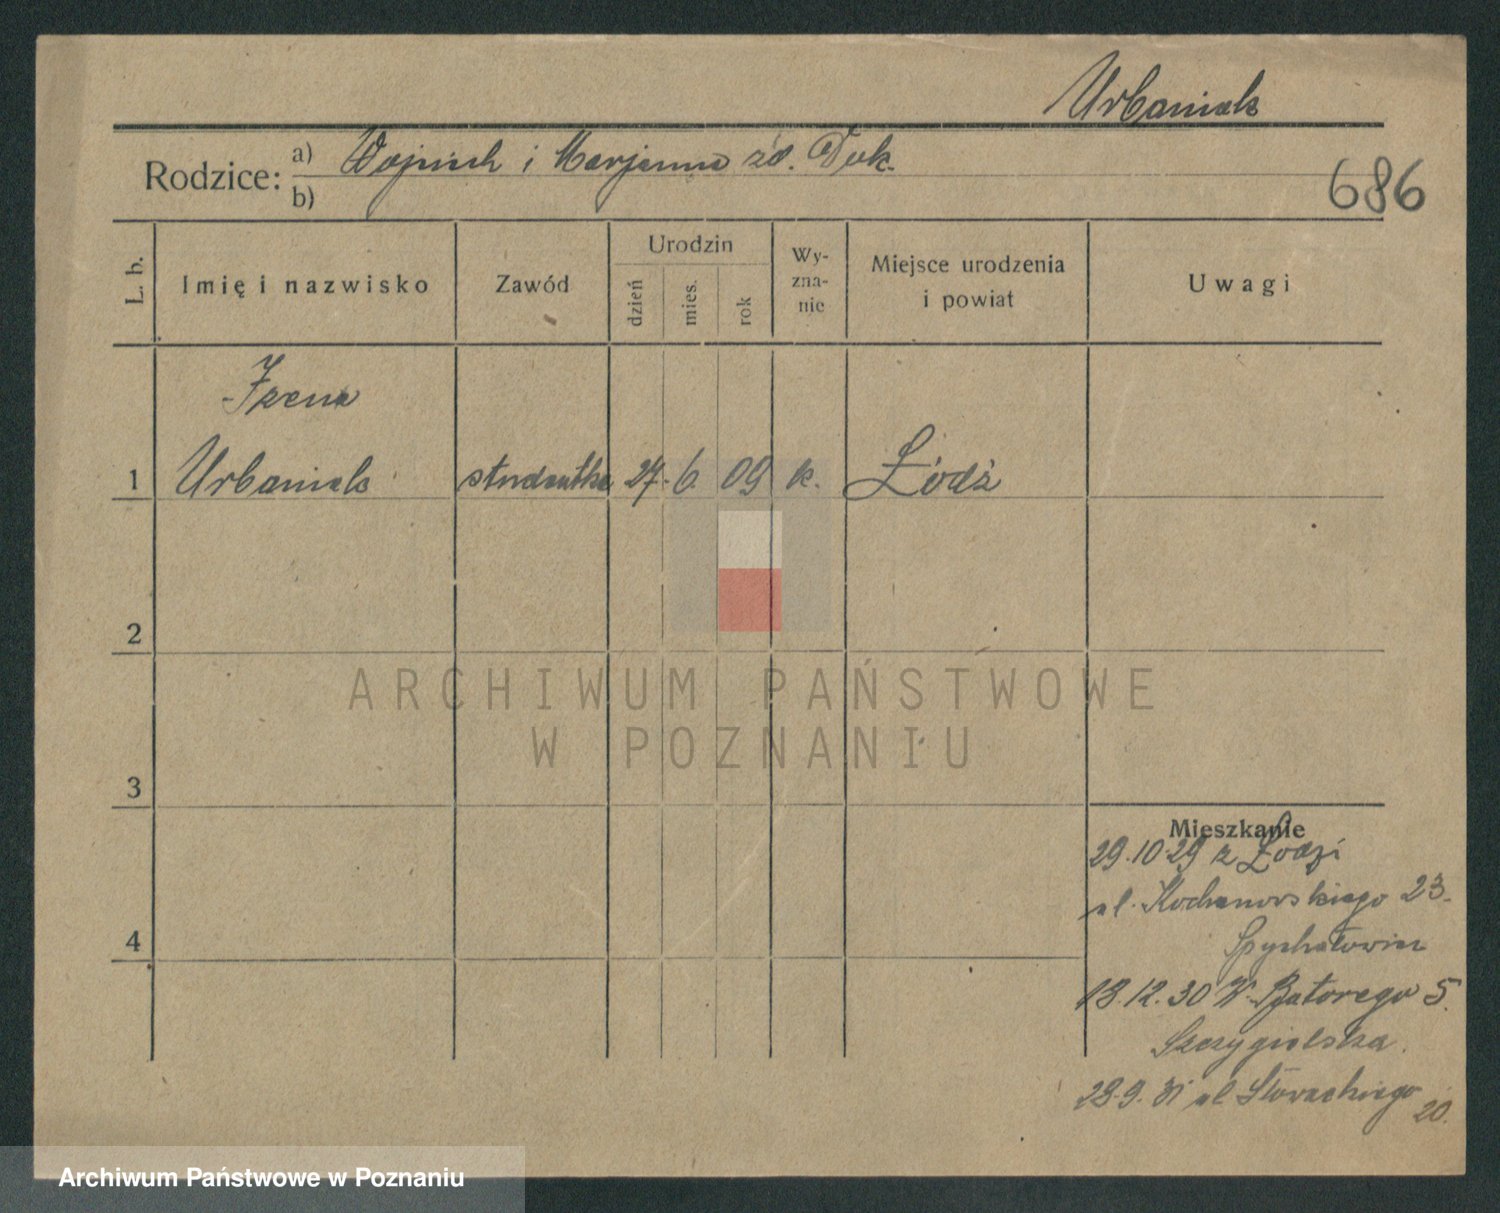 Urbaniak
Rodzice: a) Wojciech i Marjanna zd. Duk.
b)
686
L. b.
Imię i nazwisko
Zawód
Urodzin
dzień
mies.
rok
Wy-
zna-
nie
Miejsce urodzenia
i powiat
Uwagi
Irena
1 Urbaniak studentka 27. 6. 09 k. Łódź
2
3
4
Mieszkanie
29.10.29 z Łodzi
ul. Kochanowskiego 23.
18.12.30 W. Batorego 5.
Szczygielska.
28.9.31 ul Słowackiego
20.
ARCHIWUM PAŃSTWOWE
W POZNANIU
Archiwum Państwowe w Poznaniu